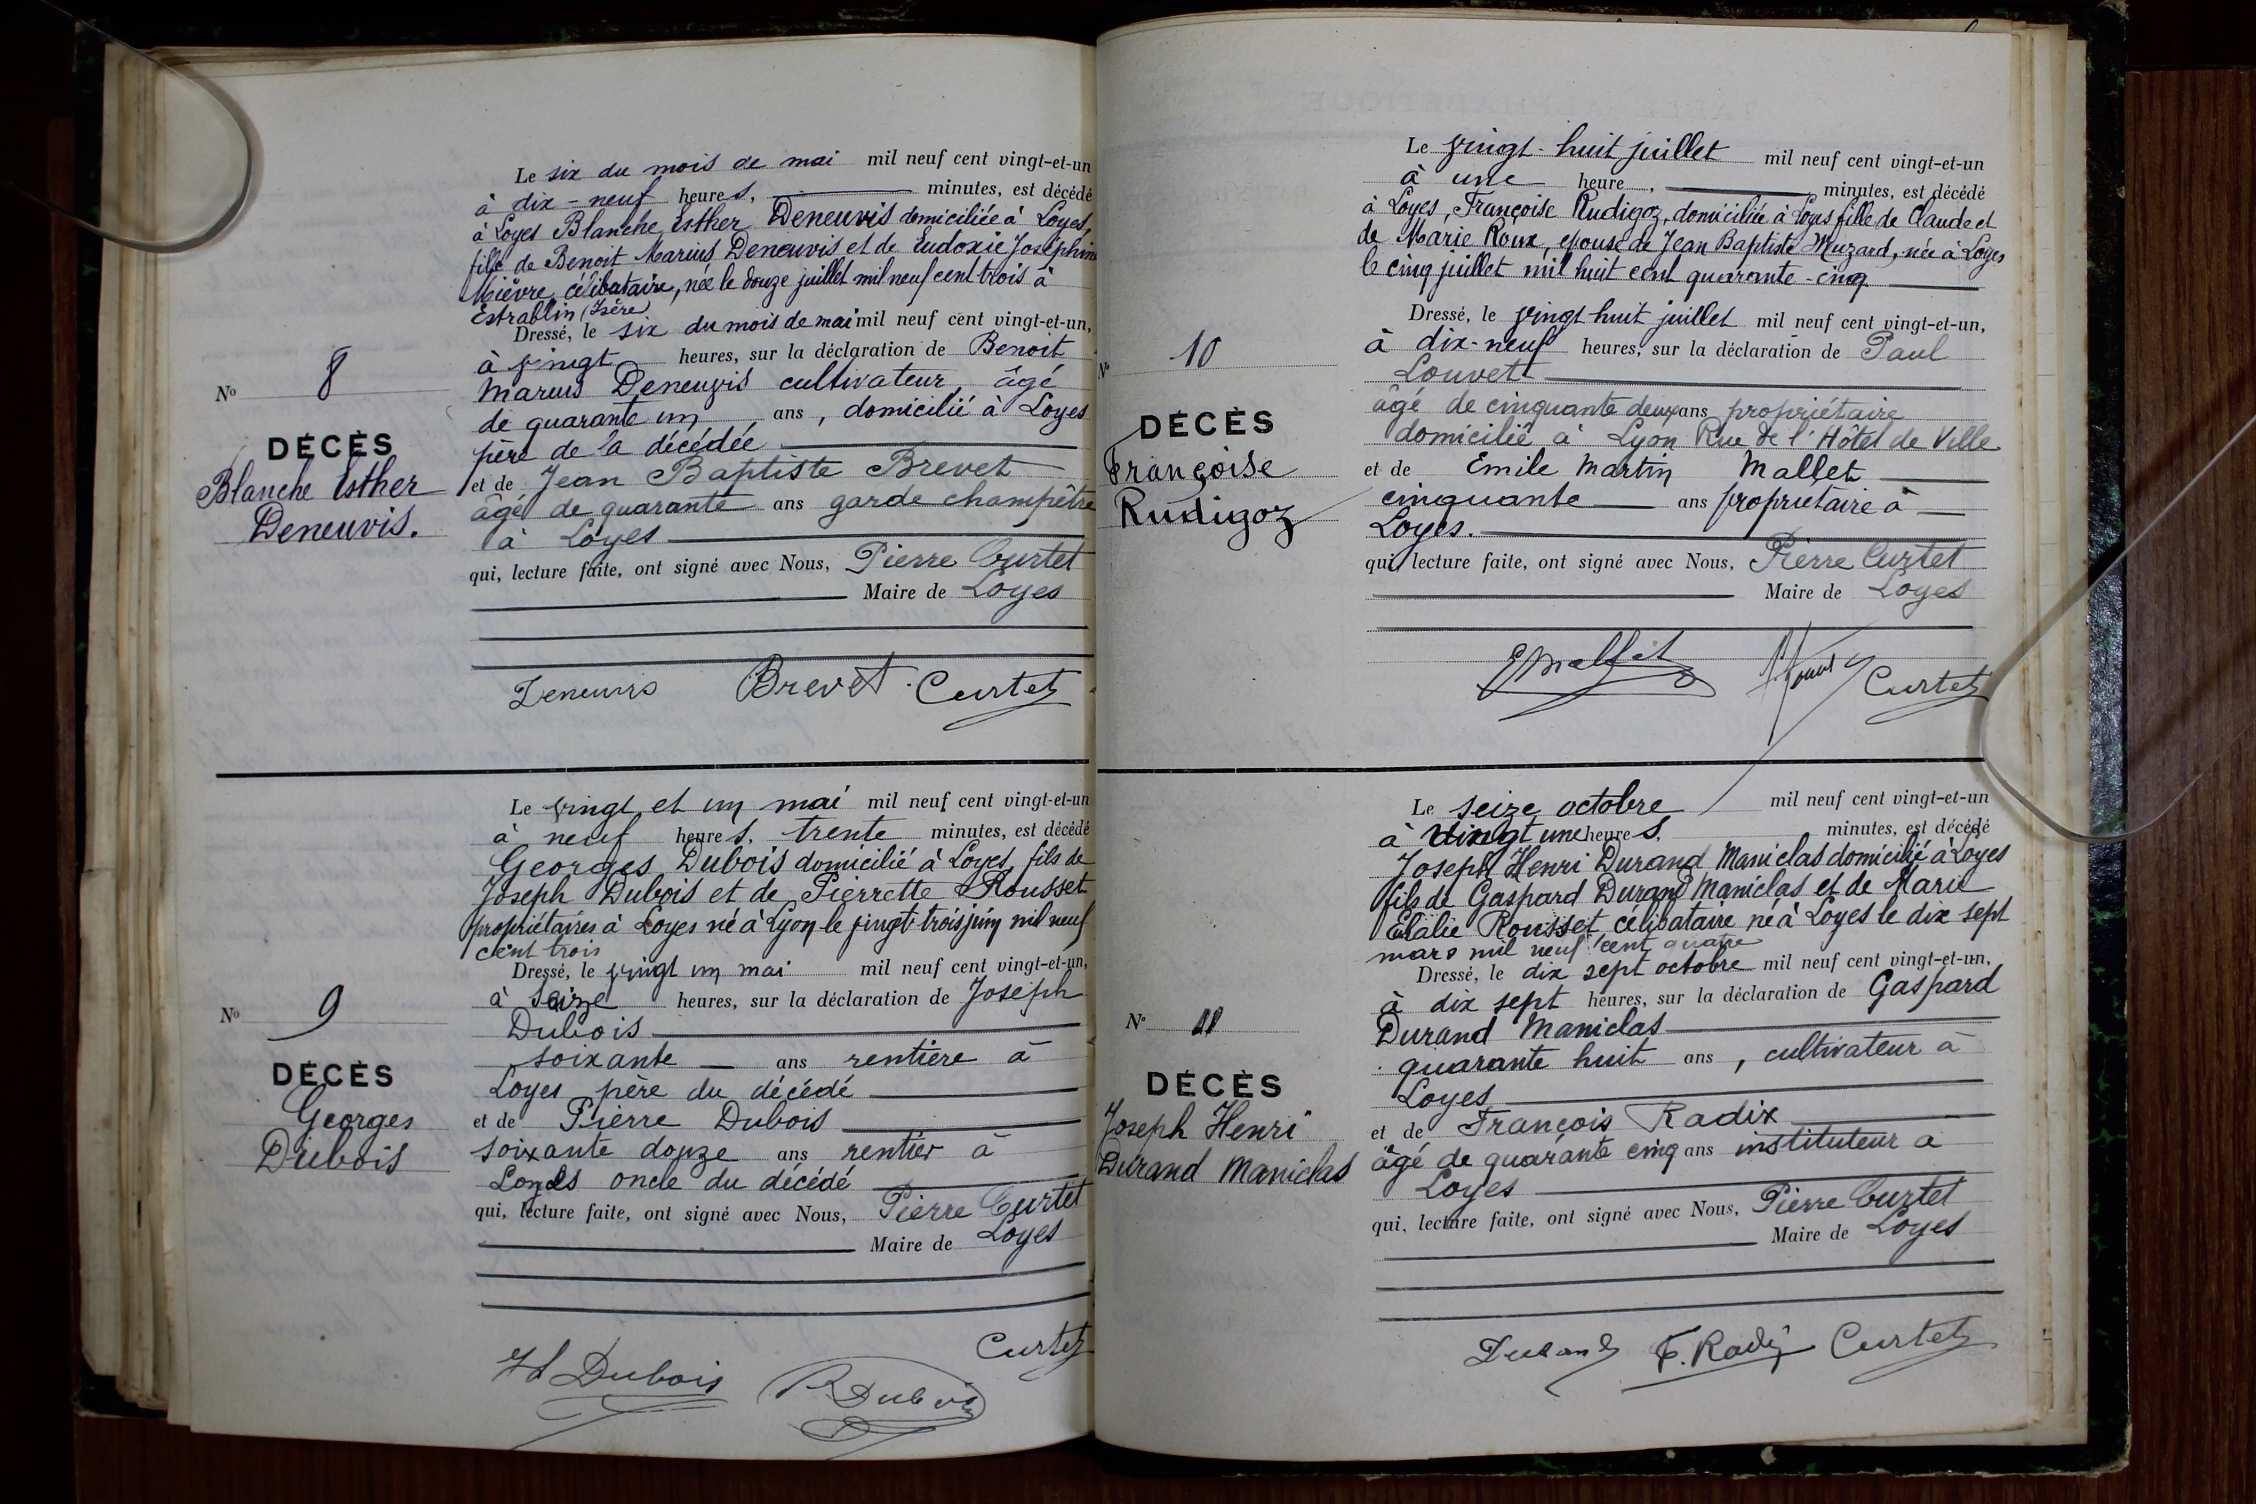 Le six du mois de mai mil neuf cent vingt-et-un
à dix-neuf heures, minutes, est décédé
à Loyes Blanche Esther Deneuvis domiciliée à Loyes,
fille de Benoit Marius Deneuvis et de Eudoxie Joséphine
Mièvre, célibataire, née le douze juillet mil neuf cent trois à
Estrablin (Isère)
Dressé, le six du mois de mai mil neuf cent vingt-et-un,
à vingt heures, sur la déclaration de Benoit
Marius Deneuvis cultivateur, âgé
de quarante un ans, domicilié à Loyes
père de la décédée
et de Jean Baptiste Brevet
âgé de quarante ans garde champêtre
à Loyes
qui, lecture faite, ont signé avec Nous, Pierre Curtet
Maire de Loyes
Deneuvis Brevet Curtet
No 8
DÉCÈS
Blanche Esther
Deneuvis.
Le vingt et un mai mil neuf cent vingt-et-un
à neuf heures, trente minutes, est décédé
Georges Dubois domicilié à Loyes, fils de
Joseph Dubois et de Pierrette Rousset
propriétaires à Loyes né à Lyon le vingt-trois juin mil neuf
cent trois
Dressé, le vingt un mai mil neuf cent vingt-et-un,
à seize heures, sur la déclaration de Joseph
Dubois
soixante ans rentière à
Loyes père du décédé
et de Pierre Dubois
soixante douze ans rentier à
Loyes oncle du décédé
qui, lecture faite, ont signé avec Nous, Pierre Curtet
Maire de Loyes
Curtet
Jh Dubois P. Dubois
No 9
DÉCÈS
Georges
Dubois
Le vingt-huit juillet mil neuf cent vingt-et-un
à une heure, minutes, est décédé
à Loyes, Françoise Rudigoz, domiciliée à Loyes fille de Claude et
de Marie Roux, épouse de Jean Baptiste Muzard, née à Loyes
le cinq juillet mil huit cent quarante-cinq
Dressé, le vingt huit juillet mil neuf cent vingt-et-un,
à dix-neuf heures, sur la déclaration de Paul
Louvet
âgé de cinquante deux ans propriétaire
domicilié à Lyon Rue de l'Hôtel de Ville
et de Emile Martin Mallet
cinquante ans propriétaire à
Loyes.
qui, lecture faite, ont signé avec Nous, Pierre Curtet
Maire de Loyes
E Mallet Curtet
No 10
DÉCÈS
Françoise
Rudigoz
Le seize octobre mil neuf cent vingt-et-un
à vingt une heures, minutes, est décédé
Joseph Henri Durand Maniclas domicilié à Loyes
fils de Gaspard Durand Maniclas et de Marie
Elalie Rousset célibataire né à Loyes le dix sept
mars mil neuf cent quatre
Dressé, le dix sept octobre mil neuf cent vingt-et-un,
à dix sept heures, sur la déclaration de Gaspard
Durand Maniclas
quarante huit ans, cultivateur à
Loyes
et de François Radix
âgé de quarante cinq ans instituteur a
Loyes
qui, lecture faite, ont signé avec Nous, Pierre Curtet
Maire de Loyes
Durand F. Radix Curtet
No 11
DÉCÈS
Joseph Henri
Durand Maniclas